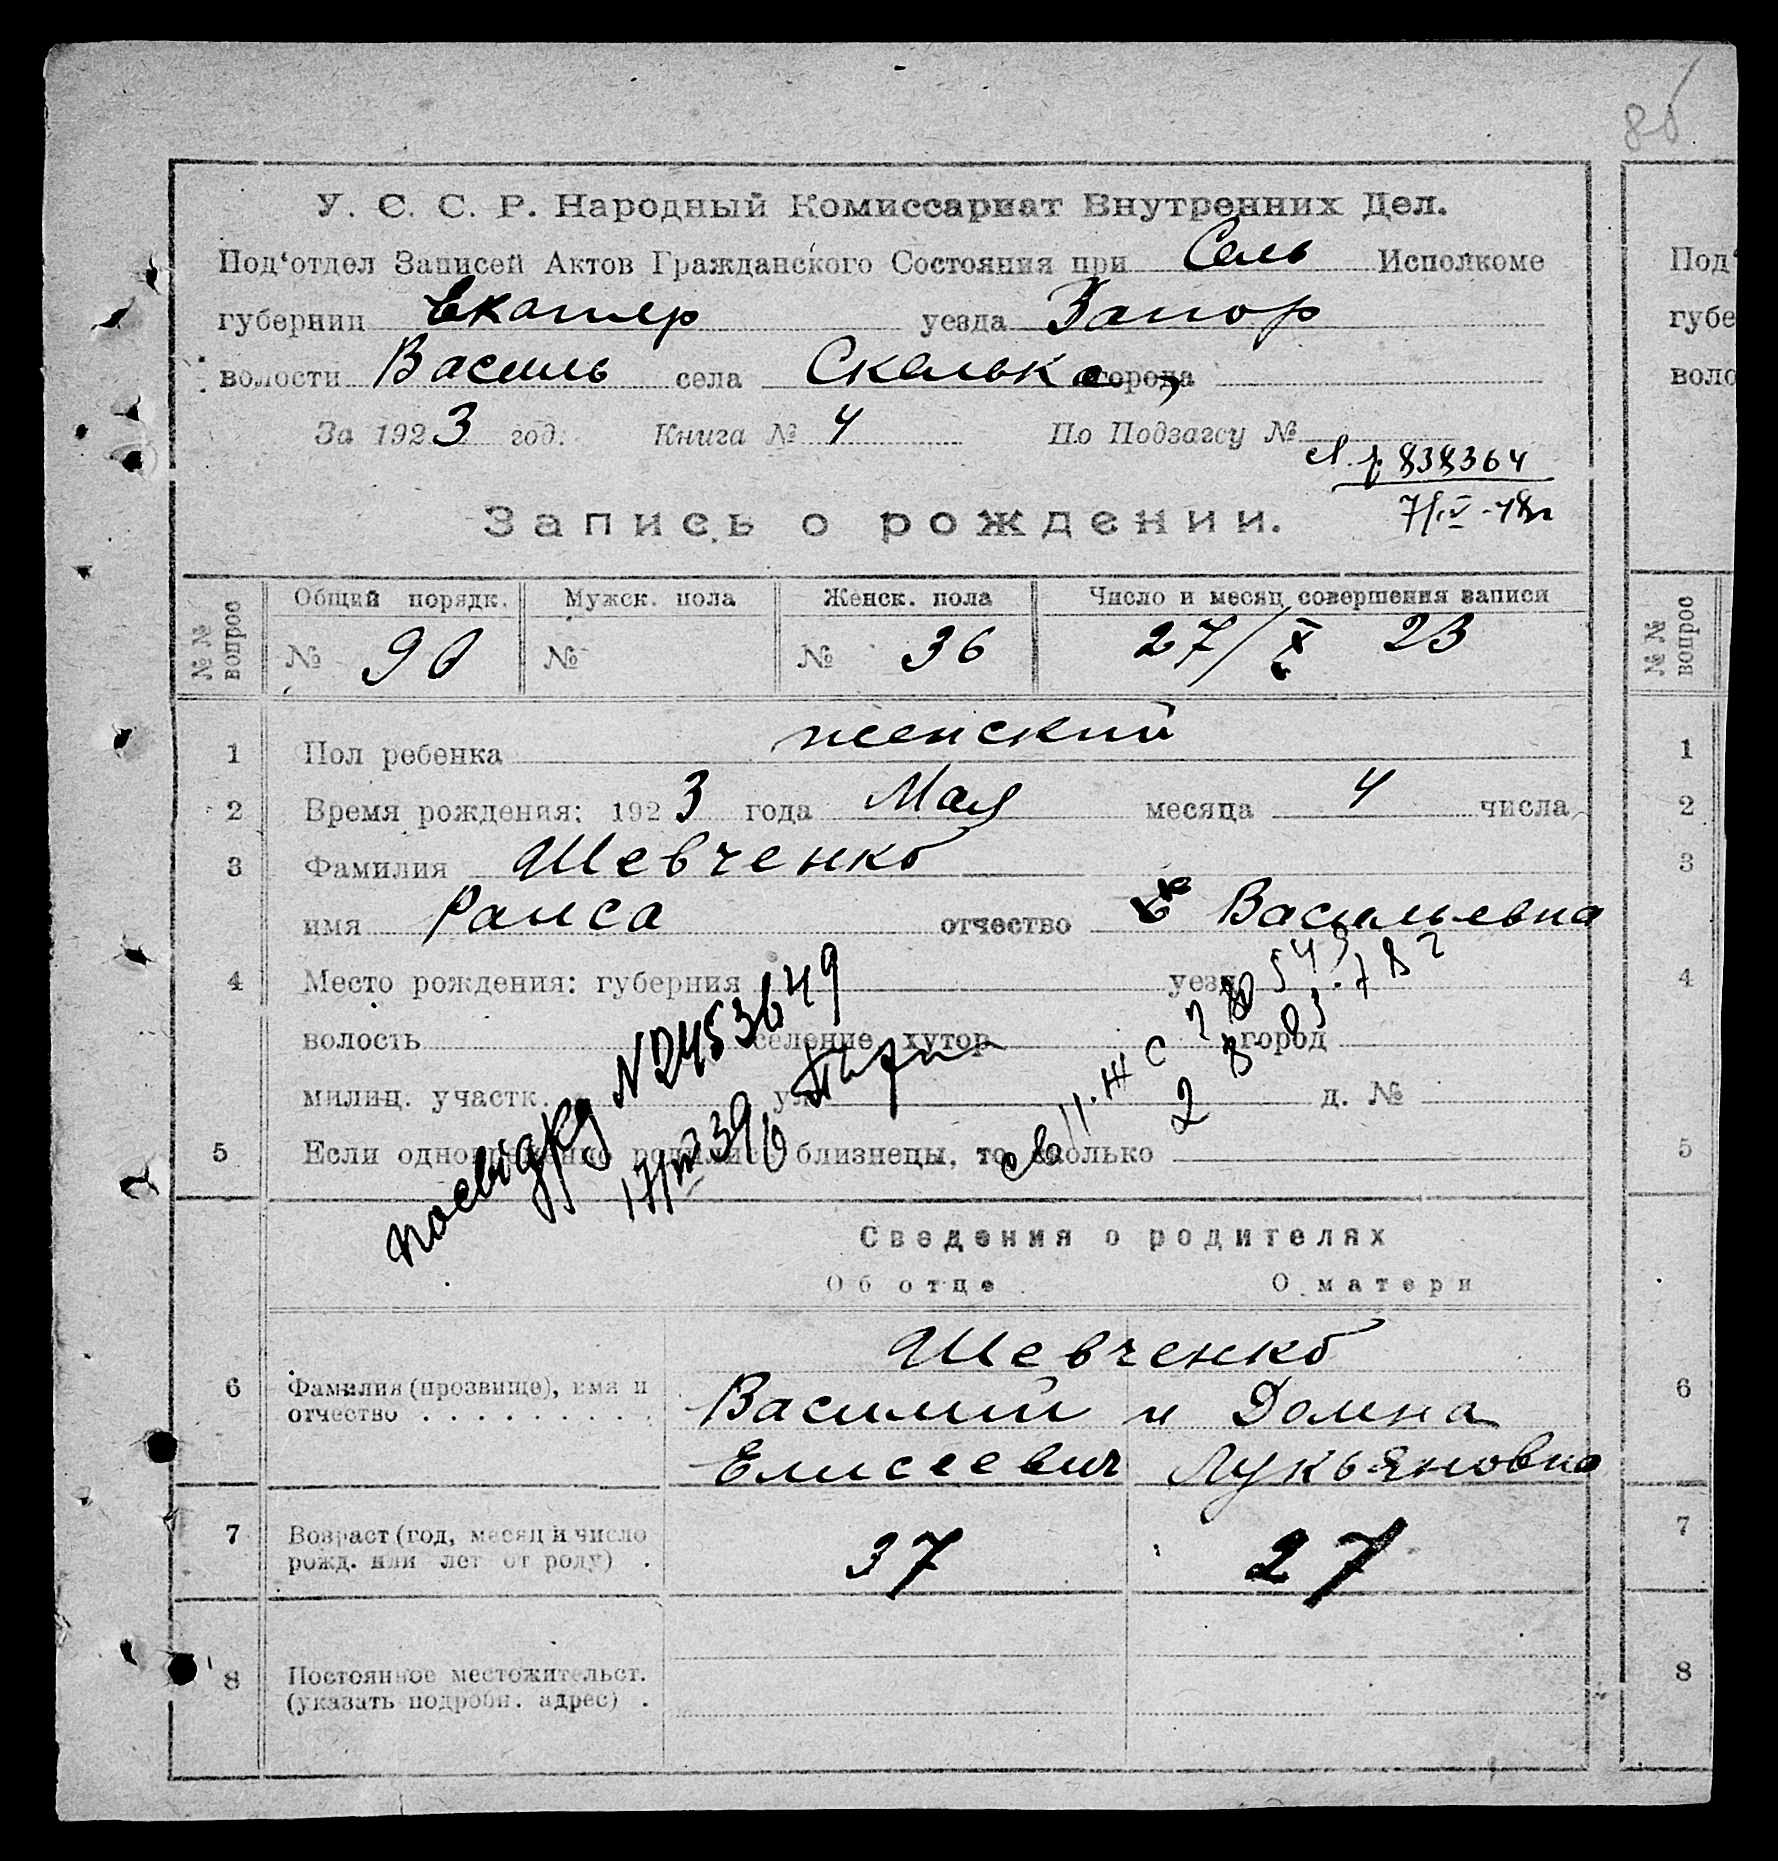 86
У. С. С. Р. Народный Комиссариат Внутренних Дел.
Под‘отдел Записей Актов Гражданского Состояния при Сель Исполкоме
губернии Екатер уезда Запор
волости Василь села Скельк города
За 1923 год. Книга № 4 По Подзагсу №
838364
Запись о рождении.
№№ вопрос
Общий порядк. Мужск. пола Женск. пола Число и месяц совершения записи
№ 90 № № 36 27/X 23
1 Пол ребенка женский
2 Время рождения: 1923 года Мая месяца 4 числа
3 Фамилия Шевченко
имя Раиса отчество Васильевна
4 Место рождения: губерния уезд
волость селение, хутор город
милиц. участк. ул. д. №
5 Если одновременно родились близнецы, то сколько
N 2453649
Сведения о родителях
Об отце О матери
6 Фамилия (прозвище), имя и отчество
Шевченко
Василий и Домна
Елисеевич Лукьяновна
7 Возраст (год, месяц и число
рожд. или лет от роду) . 37 27
8 Постоянное местожительст.
(указать подробн. адрес) .
Под‘
губе
воло
№№ вопрос
1
2
3
4
5
6
7
8